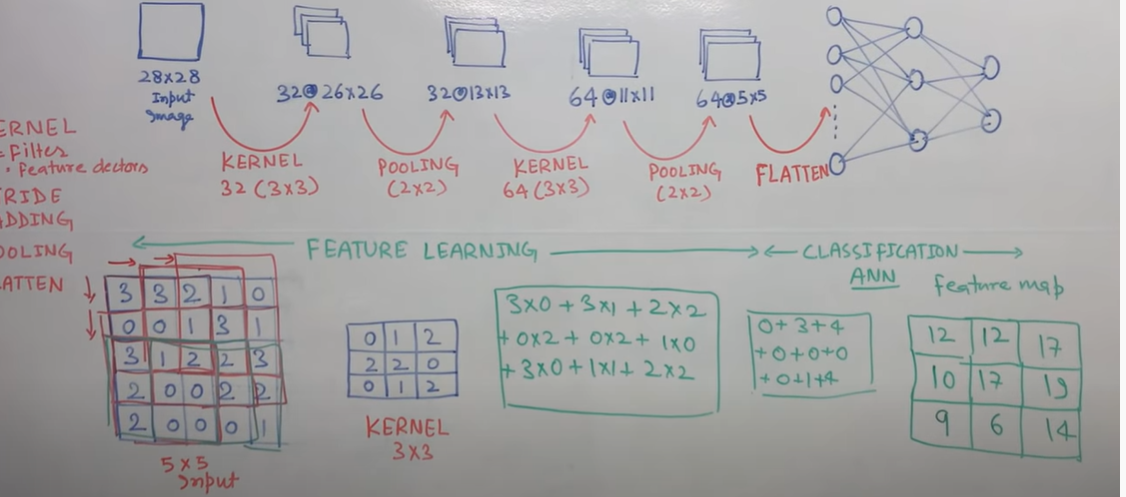 28x28
Input
Image
32@26x26
32@13x13
64@11x11
64@5x5
KERNEL
32 (3x3)
POOLING
(2x2)
KERNEL
64 (3x3)
POOLING
(2x2)
FLATTEN
ERNEL
= Filter
• Feature dectors
RIDE
ADDING
OOLING
ATTEN
FEATURE LEARNING
CLASSIFICATION
ANN
3 3 2 1 0
0 0 1 3 1
3 1 2 2 3
2 0 0 2 2
2 0 0 0 1
5x5
Input
0 1 2
2 2 0
0 1 2
KERNEL
3x3
3x0 + 3x1 + 2x2
+ 0x2 + 0x2 + 1x0
+ 3x0 + 1x1 + 2x2
0+3+4
+0+0+0
+0+1+4
feature map
12 12 17
10 17 19
9 6 14